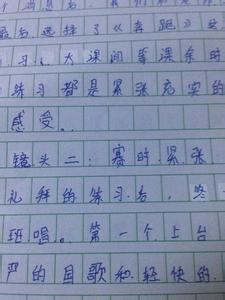 最后选择了《奔跑》这
练习、大课间等课余时
练习都是紧张充实的
感受。
镜头二:赛时.紧张
礼拜的练习后,终
班唱。第一个上台
严的国歌和轻快的